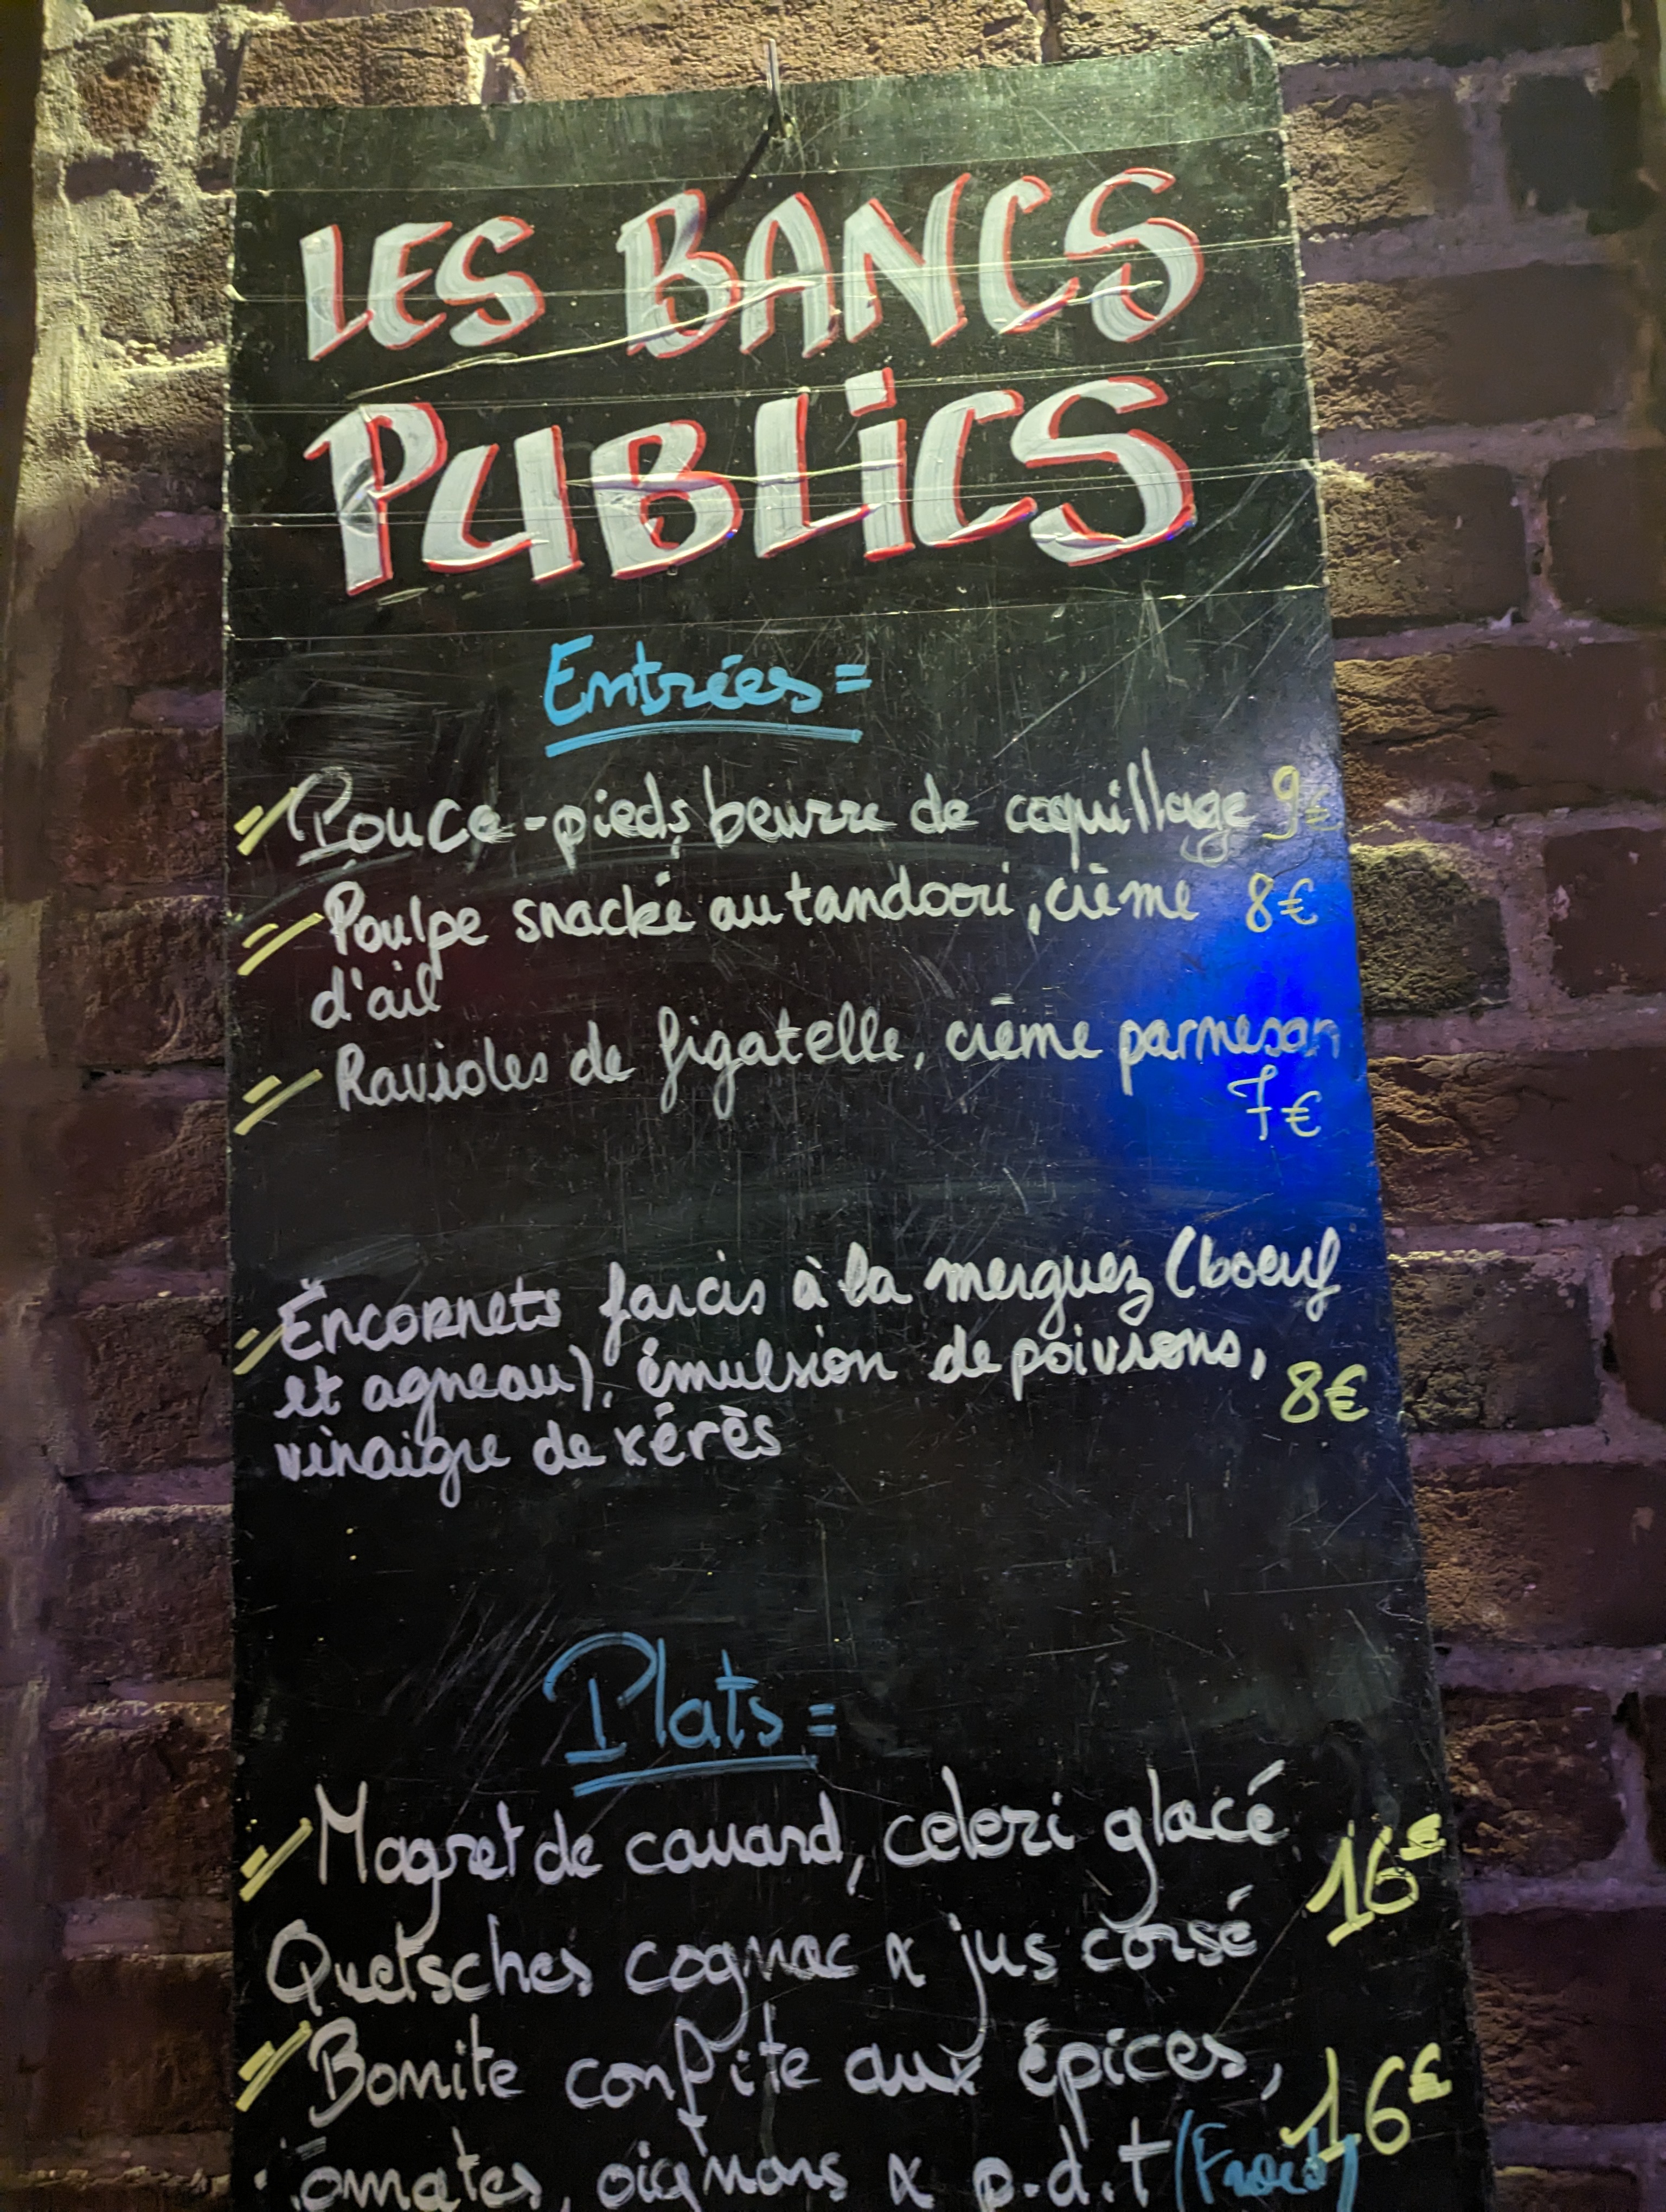 LES BANCS
PUBLiCS
Entrées =
Pouce-pieds beurre de coquillage 9€
Poulpe snacké au tandoori, crème 8€
d'ail
Ravioles de figatelle, crème parmesan
7€
Encornets farcis à la merguez (boeuf
et agneau), émulsion de poivrons,
8€
vinaigre de xérès
Plats =
Magret de canard, celeri glacé
16€
Quetsches cognac & jus corsé
Bonite confite aux épices,
16€
Tomates, oignons & p.d.t (Froid)